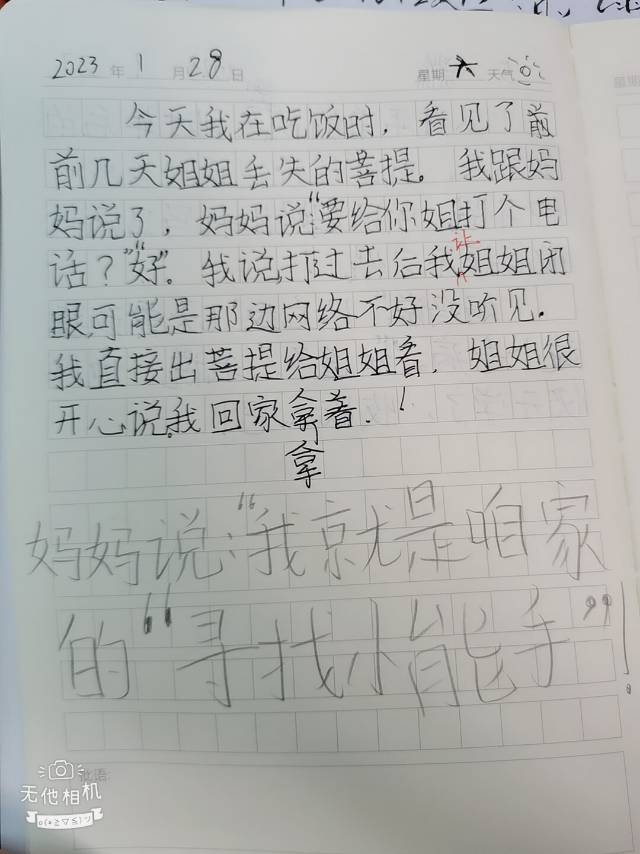 2023年1月28日 星期六 天气
今天我在吃饭时，看见了前
前几天姐姐丢失的菩提。我跟妈
妈说了，妈妈说:“要给你姐打个电
话？”“好”。我说,打过去后我让姐姐闭
眼,可能是那边网络不好没听见.
我直接出菩提给姐姐看.姐姐很
开心说,我回家拿着.！
拿
妈妈说:“我就是咱家
的“寻找小能手”！
批语:
无他相机